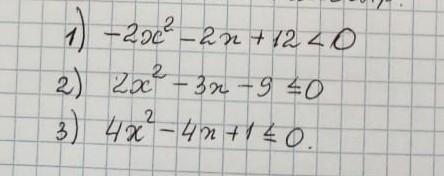 1) -2x² - 2x + 12 < 0
2) 2x² - 3x - 9 ≤ 0
3) 4x² - 4x + 1 ≤ 0.